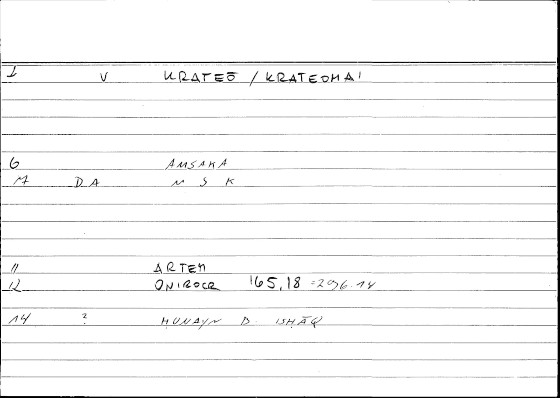 1 V KRATEŌ / KRATEOMAI
6 AMSAKA
M DA M S K
11 ARTEM
12 ONIROCR 165,18 =296.14
14 ? HUNAYN B. ISHĀQ